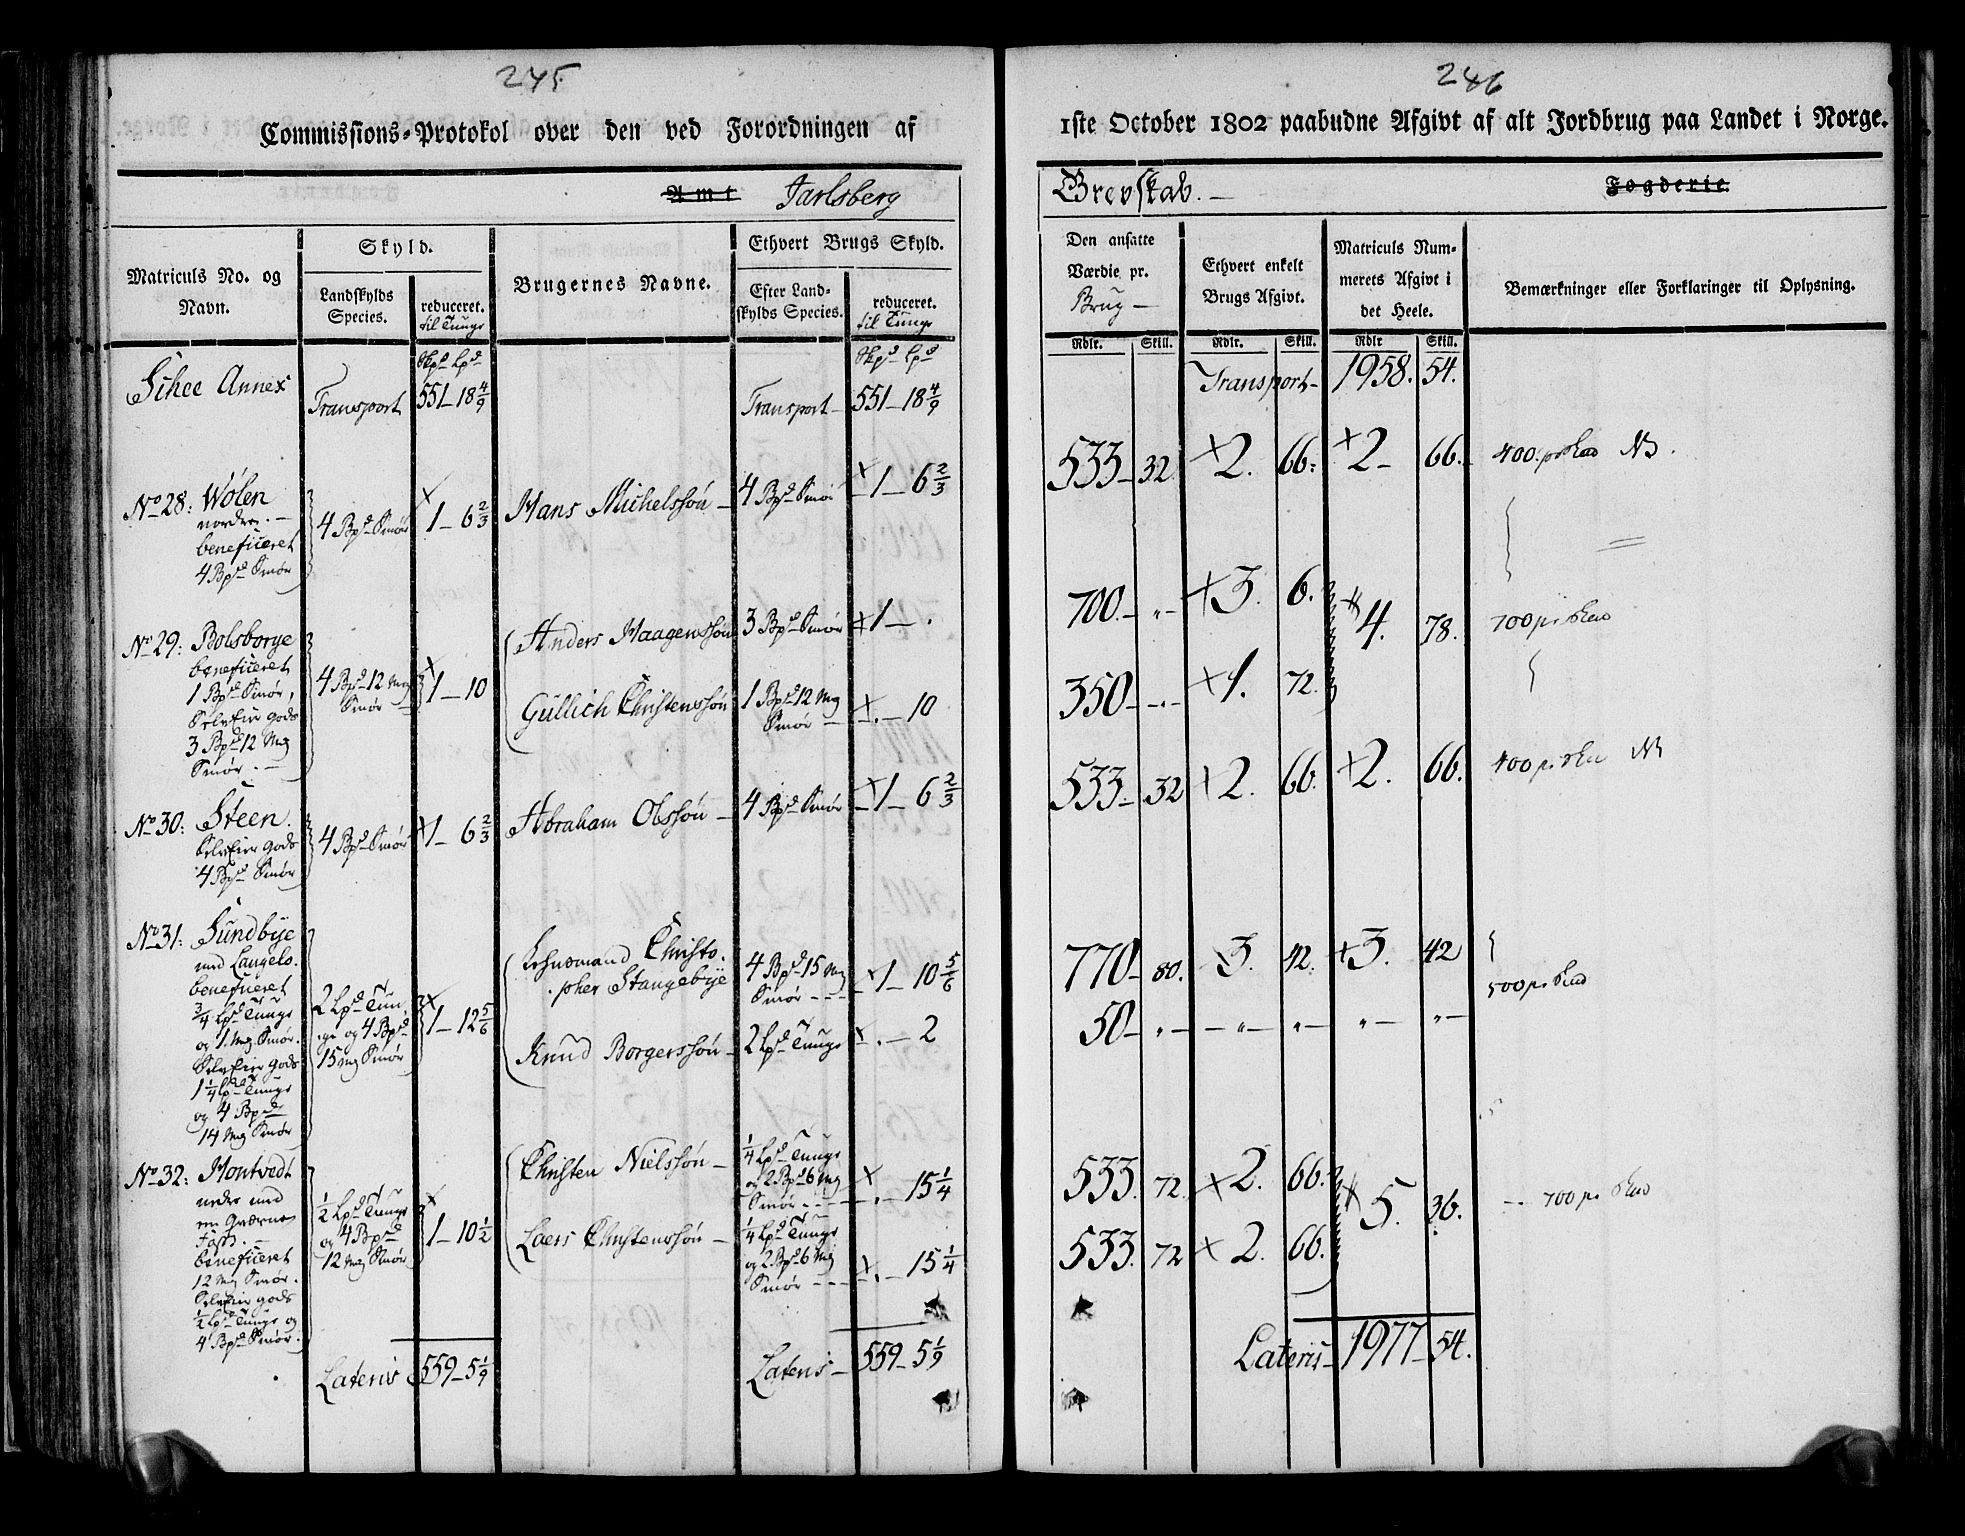 245
Commissions-Protokol over den ved Forordningen af
Amt Jarlsberg
Matriculs No. og
Navn.
Skyld.
Landskylds
Species.
reduceret.
til Tunge
Brugernes Navne.
Ethvert Brugs Skyld.
Efter Land-
skylds Species.
reduceret.
til Tunge
Skpd Lpd
Skpd Lpd
Sihee Annex
Transport 551-18 4/9
Transport- 551-18 4/9
No 28: Wølen
nordre.-
beneficeret
4 Bpd Smør
4 Bpd Smør
1-6 2/3
Hans Michelssøn-
4 Bpd Smør
1-6 2/3
No 29: Bolsborge
beneficeret
1 Bpd Smør,
Selveier Gods
3 Bpd 12 Mrg
Smør.-
4 Bpd 12 Mrg
Smør
1-10
Anders Haagenssøn
3 Bpd Smør
1-.
Gullich Christenssøn
1 Bpd 12 Mrg
Smør
.-10
No 30: Steen.
Selveier Gods
4 Bpd Smør
4 Bpd Smør
1-6 2/3
Abraham Olssøn-
4 Bpd Smør
1-6 2/3
No 31: Sundbye
med Langelo.
beneficeret
3/4 Lpd Tunge
og 1 Mrg Smør.
Selveier Gods
1 1/4 Lpd Tunge
og 4 Bpd
14 Mrg Smør
2 Lpd Tun
ge og 4 Bpd
15 Mrg Smør
1-12 5/6
Lehnsmand Christo.
pher Stangebye
4 Bpd 15 Mrg
Smør
1-10 5/6
Knud Borgerssøn-
2 Lpd Tunge
.-2
No 32: Hontvedt
nedre med
en Qværne
beneficeret
12 Mrg Smør.
Selveier Gods
1/2 Lpd Tunge og
4 Bpd Smør.
1/2 Lpd Tunge
og 4 Bpd
12 Mrg Smør
1-10 1/2
Christen Nielssøn-
1/4 Lpd Tunge
og 2 Bpd 6 Mrg
Smør
.-15 1/4
Laers Christenssøn-
1/4 Lpd Tunge
og 2 Bpd 6 Mrg
Smør
.-15 1/4
Lateris 559-5 1/9
Lateris- 559-5 1/9
246
1ste October 1802 paabudne Afgivt af alt Jordbrug paa Landet i Norge.
Grevskab.- Fogderie.
Den ansatte
Værdie pr.
Brug-
Ethvert enkelt
Brugs Afgivt.
Matriculs Num-
merets Afgivt i
det Heele.
Bemærkninger eller Forklaringer til Oplysning.
Rdlr. Skill. Rdlr. Skill. Rdlr Skill.
Transport- 1958. 54.
533- 32 2. 66: 2- 66. 400. pr Skd NB.
700.- 3. 6. 4. 78. 700 pr Skd
350- 1. 72.
533- 32 2. 66. 2. 66. 400 pr Skd NB
770- 80. 3. 42. 3. 42 500 pr Skd
50-
533. 72. 2. 66. 5. 36. 700 pr Skd
533. 72 2. 66.
Lateris- 1977- 54.